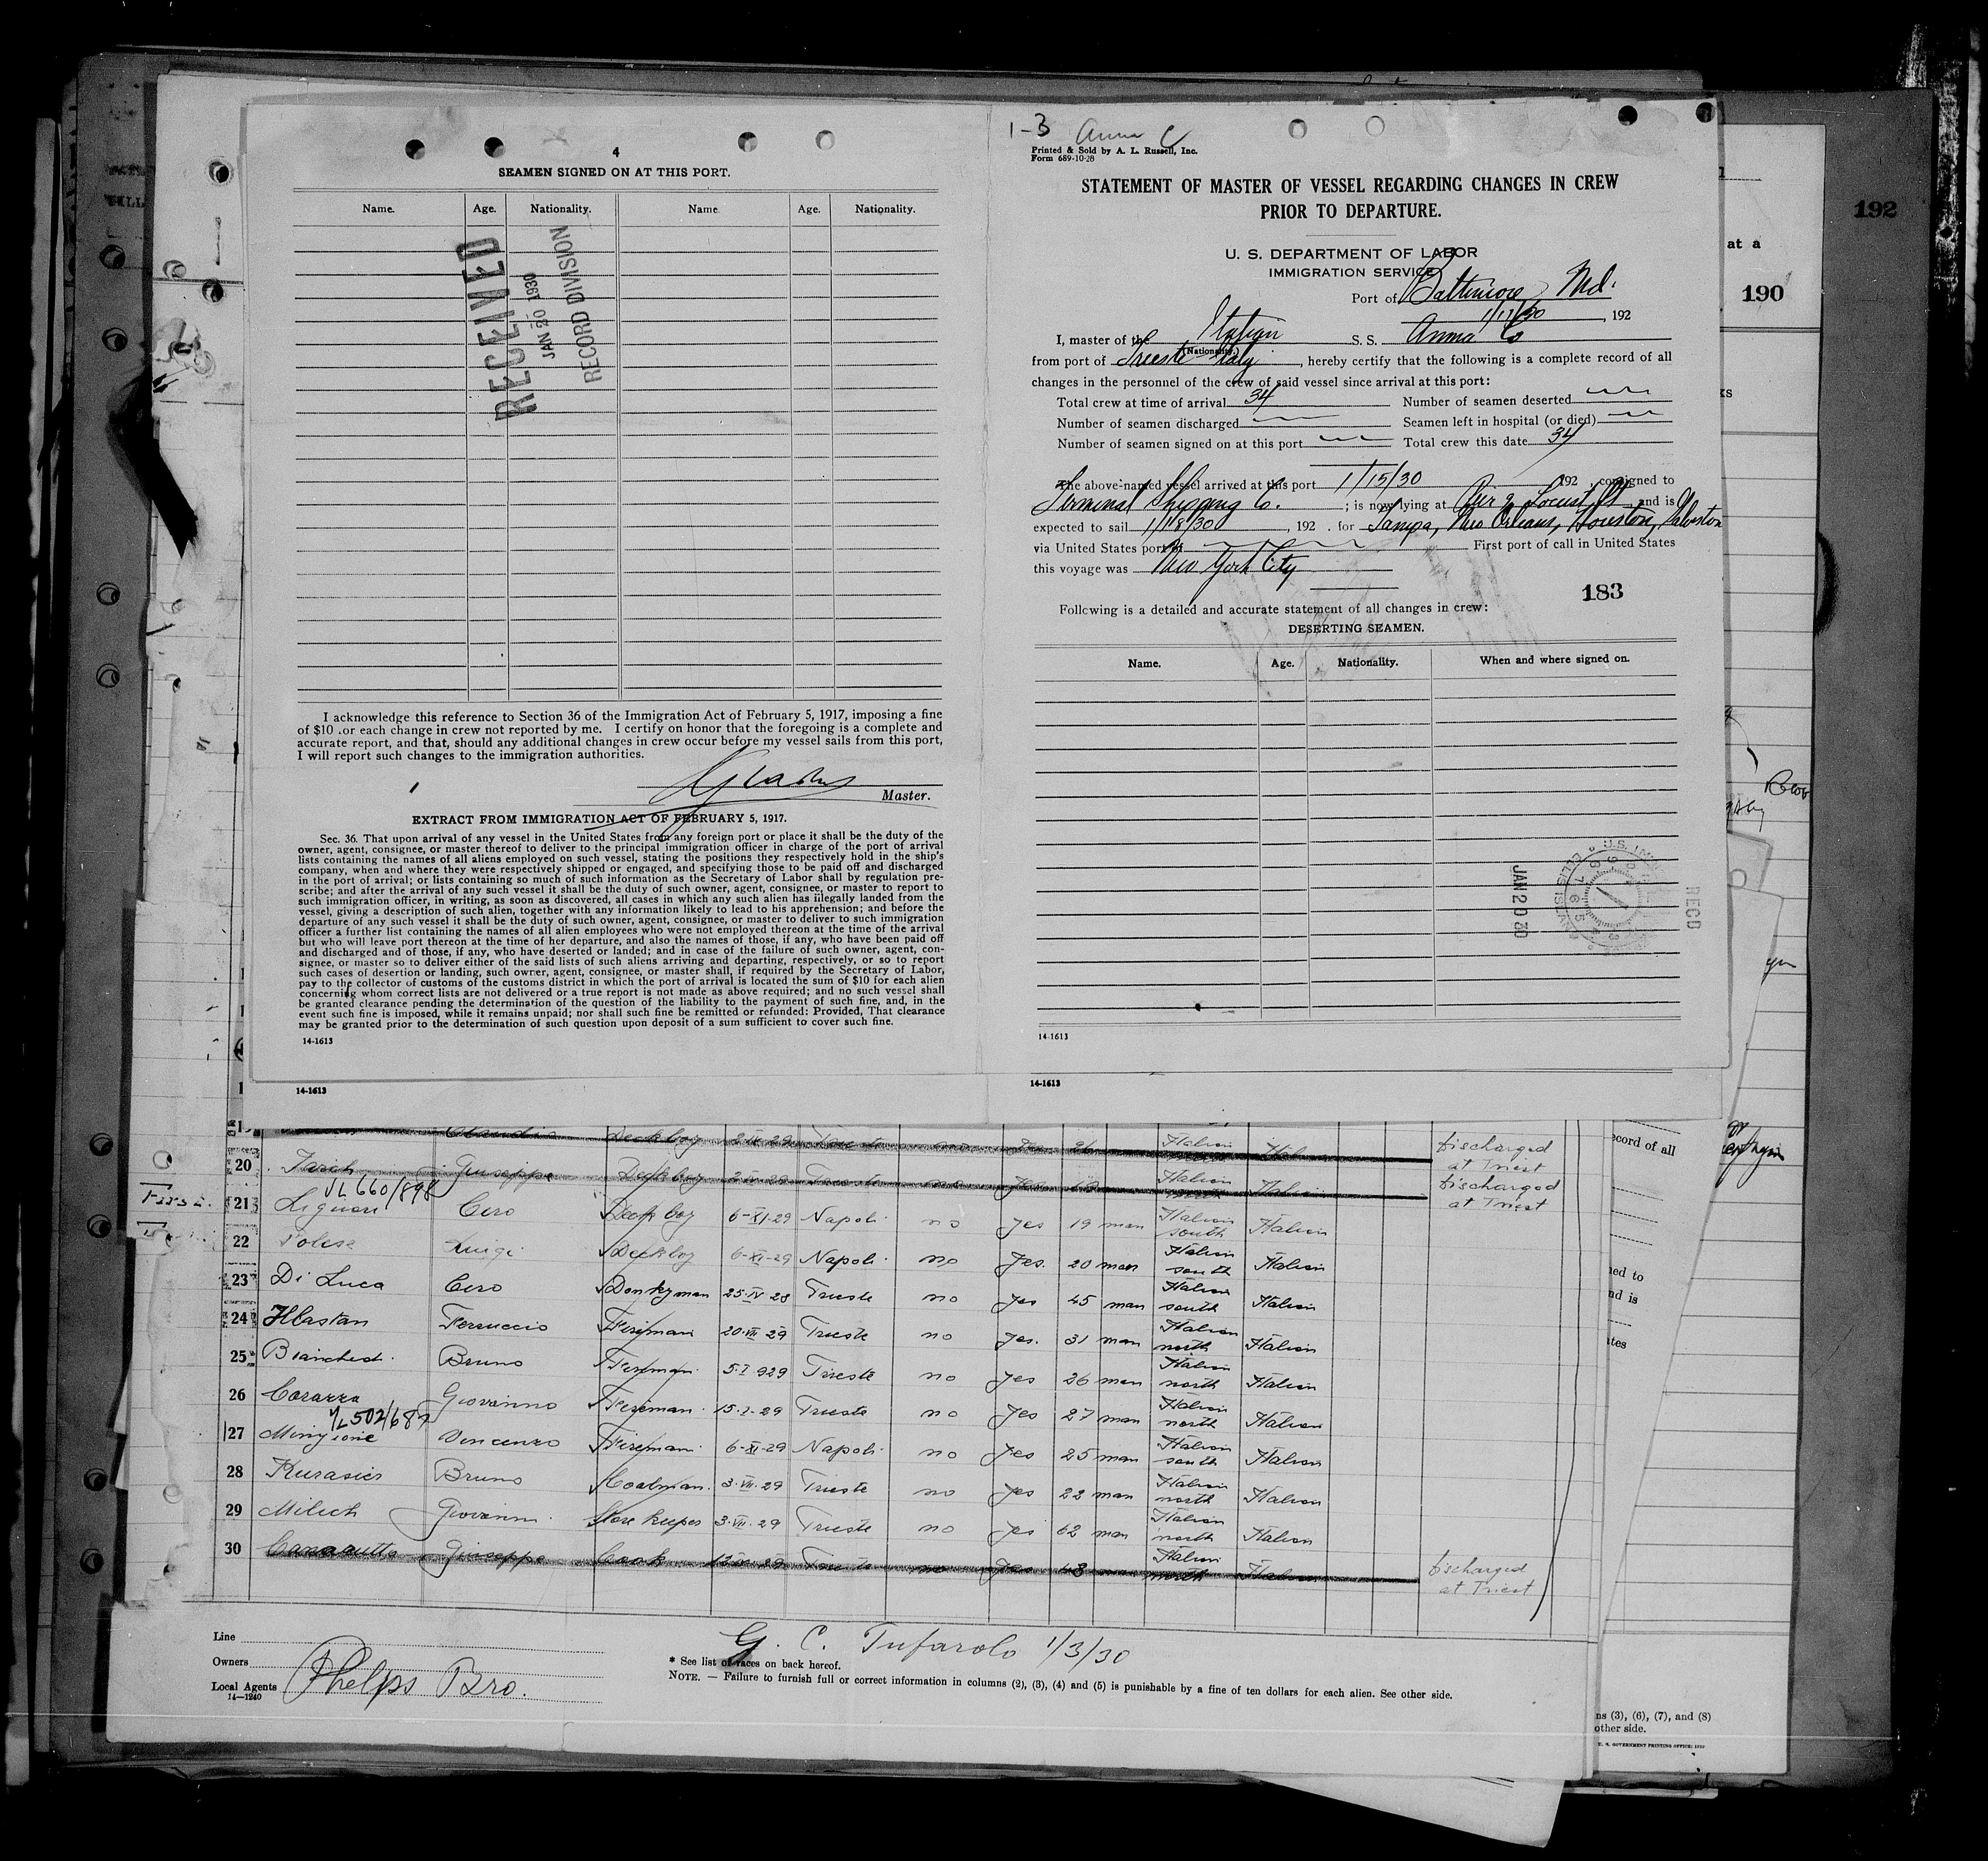 192
190
at a
4
SEAMEN SIGNED ON AT THIS PORT.
Name. Age. Nationality. Name. Age. Nationality.
RECEIVED
JAN 20 1930
RECORD DIVISION
I acknowledge this reference to Section 36 of the Immigration Act of February 5, 1917, imposing a fine
of $10 .or each change in crew not reported by me. I certify on honor that the foregoing is a complete and
accurate report, and that, should any additional changes in crew occur before my vessel sails from this port,
I will report such changes to the immigration authorities.
Master.
EXTRACT FROM IMMIGRATION ACT OF FEBRUARY 5, 1917.
Sec. 36. That upon arrival of any vessel in the United States from any foreign port or place it shall be the duty of the
owner, agent, consignee, or master thereof to deliver to the principal immigration officer in charge of the port of arrival
lists containing the names of all aliens employed on such vessel, stating the positions they respectively hold in the ship's
company, when and where they were respectively shipped or engaged, and specifying those to be paid off and discharged
in the port of arrival; or lists containing so much of such information as the Secretary of Labor shall by regulation pre-
scribe; and after the arrival of any such vessel it shall be the duty of such owner, agent, consignee, or master to report to
such immigration officer, in writing, as soon as discovered, all cases in which any such alien has illegally landed from the
vessel, giving a description of such alien, together with any information likely to lead to his apprehension; and before the
departure of any such vessel it shall be the duty of such owner, agent, consignee, or master to deliver to such immigration
officer a further list containing the names of all alien employees who were not employed thereon at the time of the arrival
but who will leave port thereon at the time of her departure, and also the names of those, if any, who have been paid off
and discharged and of those, if any, who have deserted or landed; and in case of the failure of such owner, agent, con-
signee, or master so to deliver either of the said lists of such aliens arriving and departing, respectively, or so to report
such cases of desertion or landing, such owner, agent, consignee, or master shall, if required by the Secretary of Labor,
pay to the collector of customs of the customs district in which the port of arrival is located the sum of $10 for each alien
concerning whom correct lists are not delivered or a true report is not made as above required; and no such vessel shall
be granted clearance pending the determination of the question of the liability to the payment of such fine, and, in the
event such fine is imposed, while it remains unpaid; nor shall such fine be remitted or refunded: Provided, That clearance
may be granted prior to the determination of such question upon deposit of a sum sufficient to cover such fine.
14-1613
1-3 Anna C
Printed & Sold by A. L. Russell, Inc.
Form 689-10-28
STATEMENT OF MASTER OF VESSEL REGARDING CHANGES IN CREW
PRIOR TO DEPARTURE.
U. S. DEPARTMENT OF LABOR
IMMIGRATION SERVICE
Port of Baltimore, Md.
1/17/30, 192
I, master of the Italian S. S. Anna C
(Nationality.)
from port of Trieste Italy, hereby certify that the following is a complete record of all
changes in the personnel of the crew of said vessel since arrival at this port:
Total crew at time of arrival 34 Number of seamen deserted
Number of seamen discharged Seamen left in hospital (or died)
Number of seamen signed on at this port Total crew this date 34
The above-named vessel arrived at this port 1/15/30 192 , consigned to
Terminal Shipping Co. ; is now lying at Pier 2 Locust Pt and is
expected to sail 1/18/30, 192 . for Tampa, New Orleans, Houston, Galveston
via United States port of First port of call in United States
this voyage was New York City
183
Following is a detailed and accurate statement of all changes in crew:
DESERTING SEAMEN.
Name. Age. Nationality. When and where signed on.
JAN 20 30
RECD
14-1613
14-1613
14-1613
Claudio Deck boy Italian discharged
at Triest
20 Giuseppe Deck boy Italian Italian discharged
at Triest
VL 660/898
21 Liguori Ciro Deck boy 6-XI-29 Napoli no yes 19 man Italian south Italian
22 Polese Luigi Deck boy 6-XI-29 Napoli no yes. 20 man Italian south Italian
23 Di Luca Ciro Donkyman 25-IV-28 Trieste no yes 45 man Italian south Italian
24 Hlastan Ferruccio Fireman 20-VII-29 Trieste no yes. 31 man Italian north Italian
25 Bianchedi Bruno Fireman 5-I-929 Trieste no yes 26 man Italian north Italian
26 Corazza Giovanno Fireman 15-I-29 Trieste no yes 27 man Italian north Italian
VL 502/682
27 Mingione Vincenzo Fireman 6-XI-29 Napoli no yes 25 man Italian south Italian
28 Kurasier Bruno Coalman 3-VII-29 Trieste no yes 22 man Italian north Italian
29 Milich Giovanni Store keeper 3-VII-29 Trieste no yes 62 man Italian north Italian
30 Giuseppe Cook no yes 48 Italian north Italian discharged
at Triest
Line
Owners
Local Agents Phelps Bro.
14—1240
G. C. Tufarolo 1/3/30
* See list of races on back hereof.
NOTE. — Failure to furnish full or correct information in columns (2), (3), (4) and (5) is punishable by a fine of ten dollars for each alien. See other side.
ecord of all
ed to
nd is
ates
ns (3), (6), (7), and (8)
other side.
U. S. GOVERNMENT PRINTING OFFICE